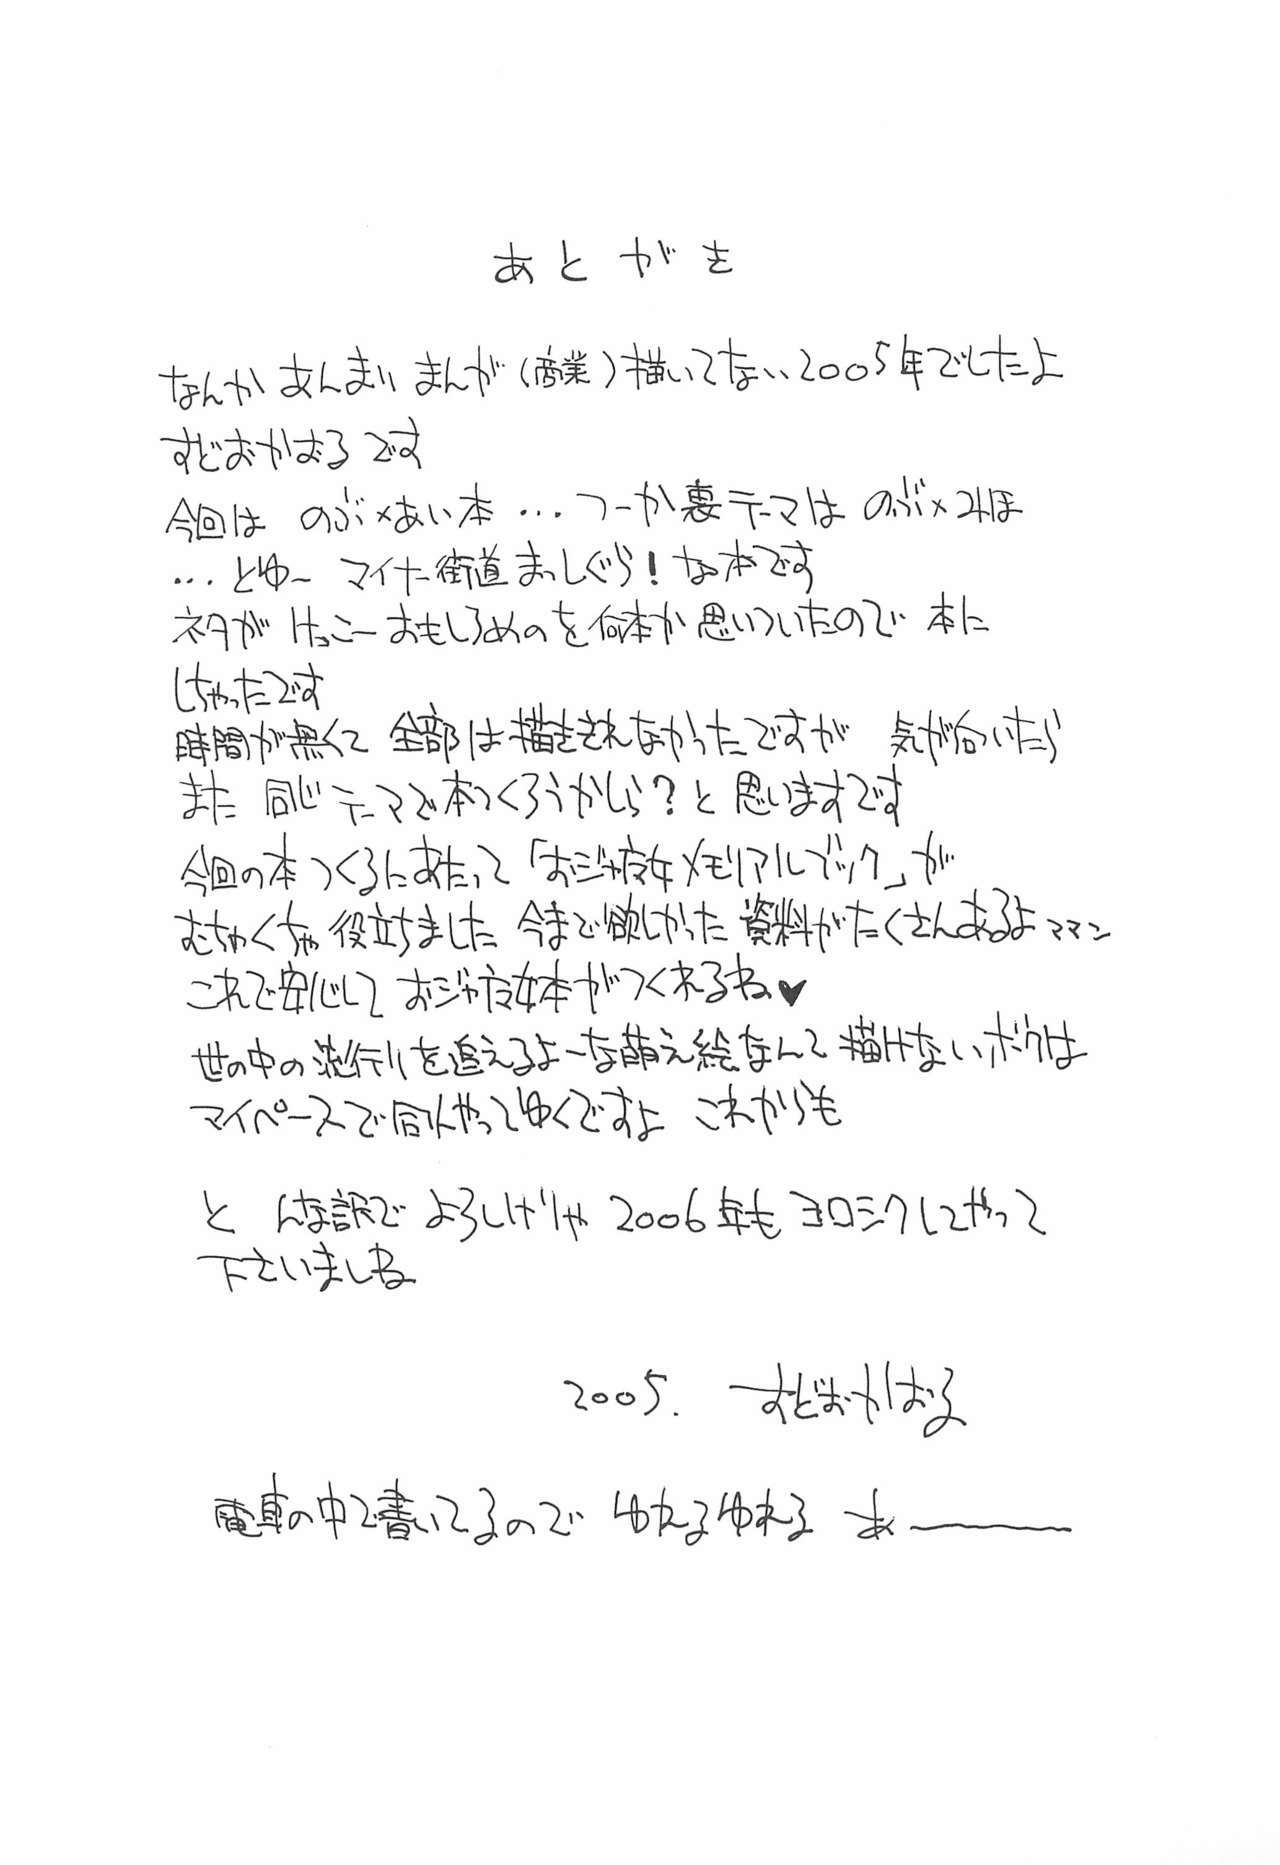 あとがき
なんか あんまり まんが(商業)描いてない 2005年でしたよ
すどおかおるです
今回は のぶ×あい本 … つーか裏テーマは のぶ×みほ
… とゆー マイナー街道まっしぐら!な本です
ネタが けっこーおもしろめのを何本か思いついたので 本に
しちゃったです
時間が無くて 全部は描ききれなかったですが 気が向いたら
また 同じテーマで本つくろうかしら?と 思いますです
今回の本つくるにあたって「おジャ魔女メモリアルブック」が
むちゃくちゃ役立ちました 今まで欲しかった資料がたくさんあるよママン
これで安心して おジャ魔女本がつくれるね♥
世の中の流行りを追えるよーな萌え絵なんて描けないボクは
マイペースで同人やってゆくですよ これからも
と んな訳で よろしげりゃ 2006年もヨロシクしてやって
下さいましね
2005. すどおかおる
電車の中で書いてるので ゆれるゆれる あ――――